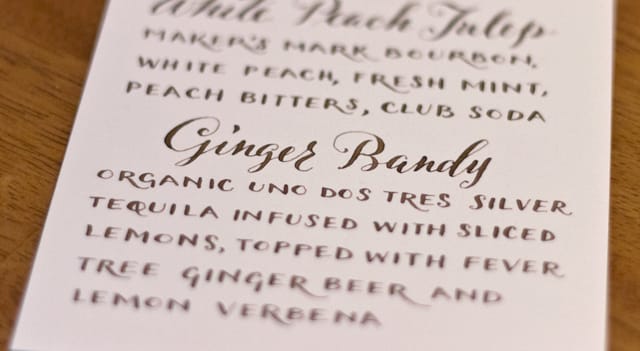 White Peach Julep
MAKER'S MARK BOURBON,
WHITE PEACH, FRESH MINT,
PEACH BITTERS, CLUB SODA
Ginger Bandy
ORGANIC UNO DOS TRES SILVER
TEQUILA INFUSED WITH SLICED
LEMONS, TOPPED WITH FEVER
TREE GINGER BEER AND
LEMON VERBENA